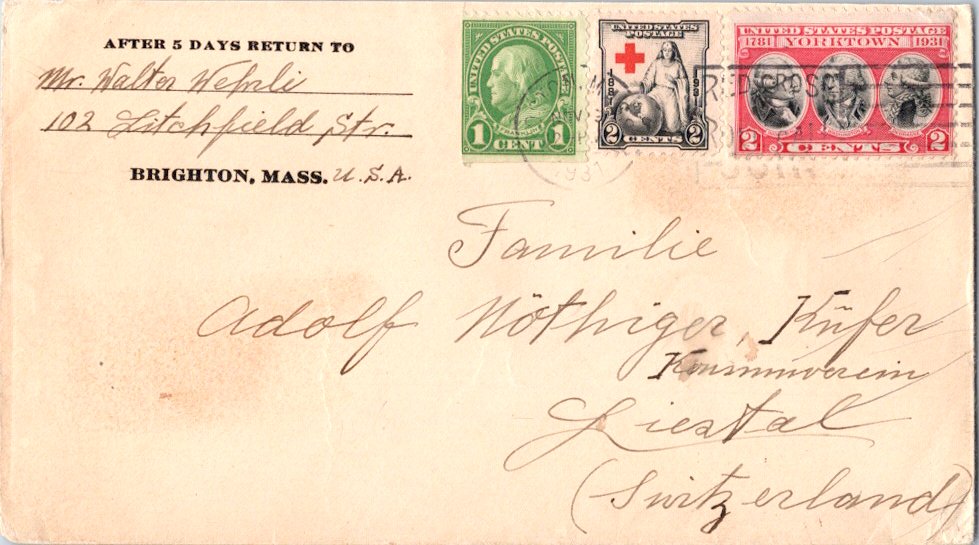 AFTER 5 DAYS RETURN TO
Mr. Walter Wehrli
102 Litchfield Str.
BRIGHTON, MASS. U.S.A.
UNITED STATES POSTAGE
FRANKLIN
1 CENT 1
UNITED STATES
POSTAGE
1881 1931
2 CENTS 2
UNITED STATES POSTAGE
1781 YORKTOWN 1931
2 CENTS 2
BOSTON, MASS.
1931
RED CROSS
JOIN
Familie
Adolf Nöthiger, Küfer
Konsumverein
Liestal
(Switzerland)